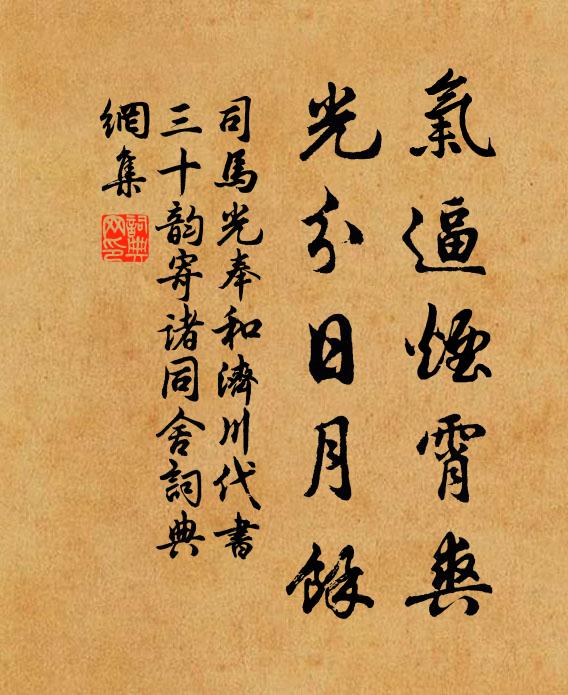 氣逼煙霄爽
光分日月餘
司馬光奉和濟川代書
三十韵寄诸同舍詞典
網集
詞典
网印